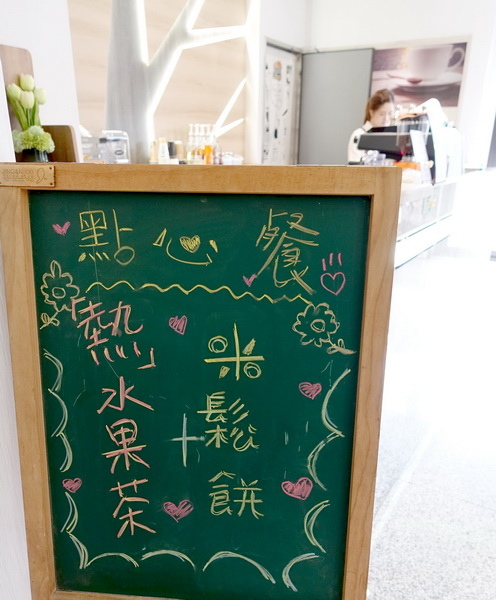 點心餐
米鬆餅
+
「熱」水果茶